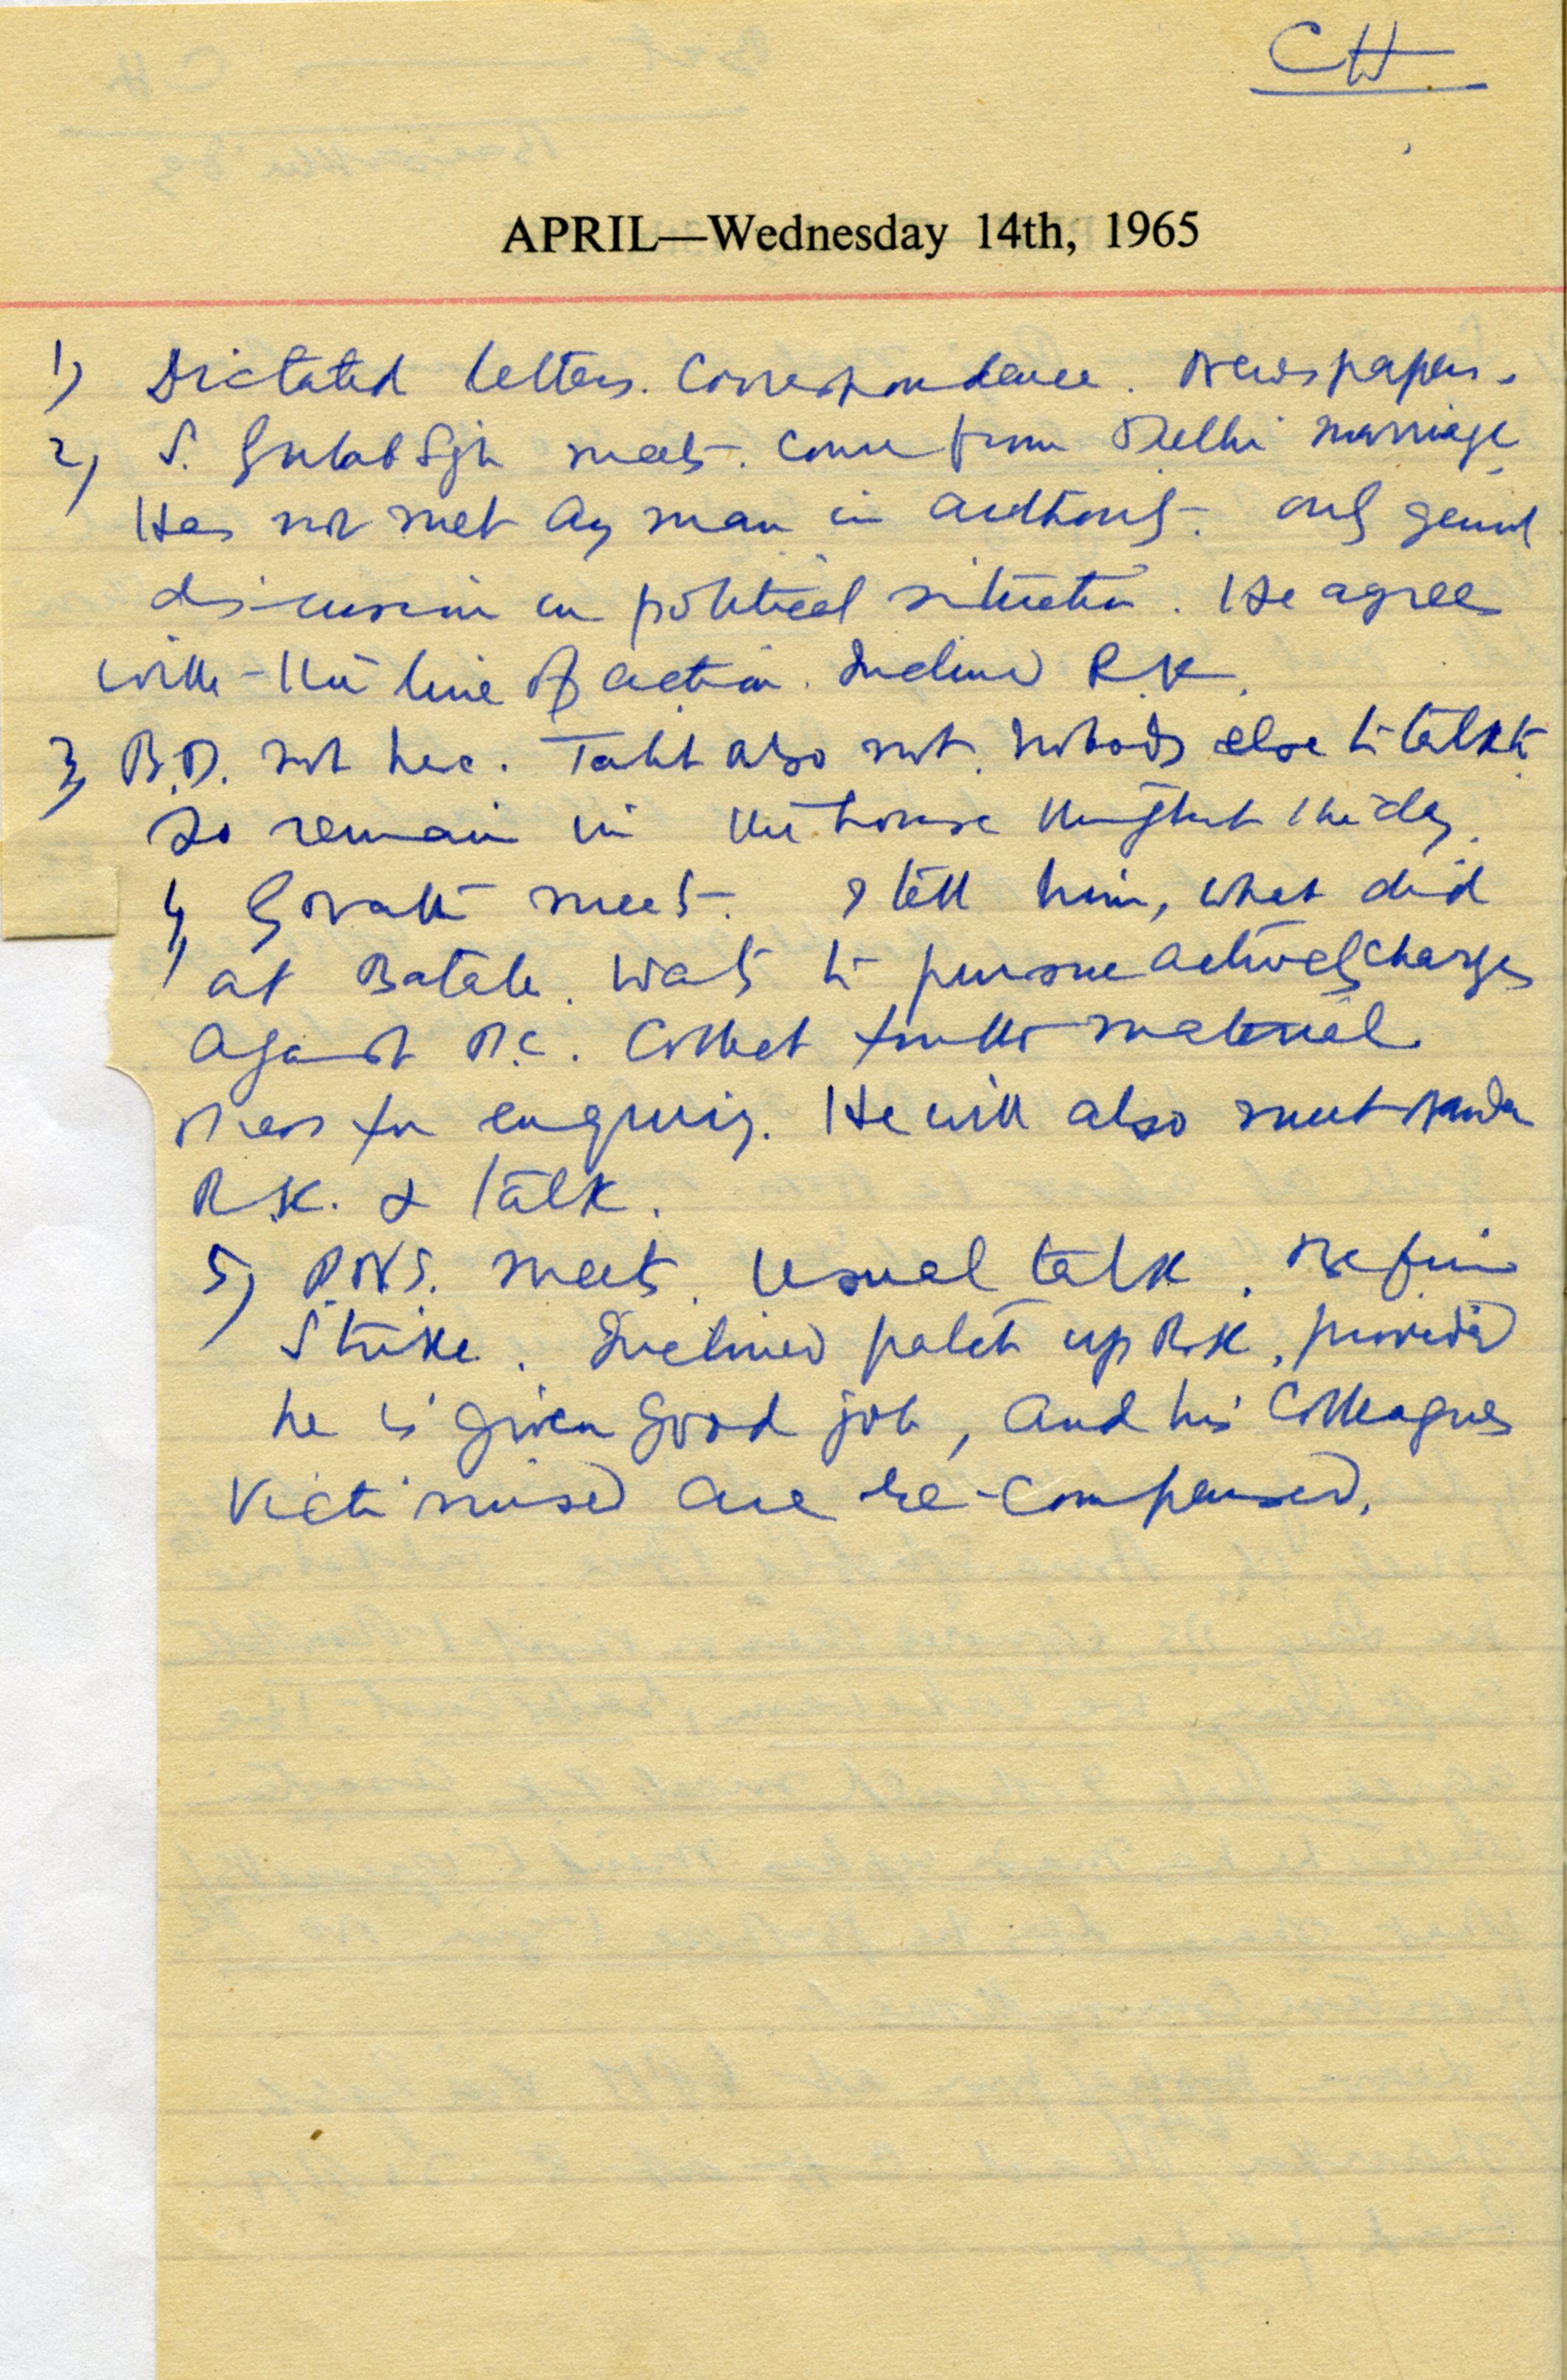 CH.
APRIL—Wednesday 14th, 1965
1) Dictated letters. Correspondence. Newspapers.
2) S. Gulab Sgh meets. Come from Delhi marriage
Has not met any man in authority. only general
discussion on political situation. He agrees
with the line of action. Inclined R.K.
3) B.D. not here. also not. Nobody else to talk to.
So remain in the house throughout the day.
4) meets. I tell him, what did
at Batala. Wants to pursue actively charges
against D.C. Collect further material
for enquiry. He will also meet
R.K. & talk.
5) P.N.S. meets. Usual talk.
Strike. Inclined patch up R.K., provided
he is given good job, and his colleagues
victimised are re-compensed.